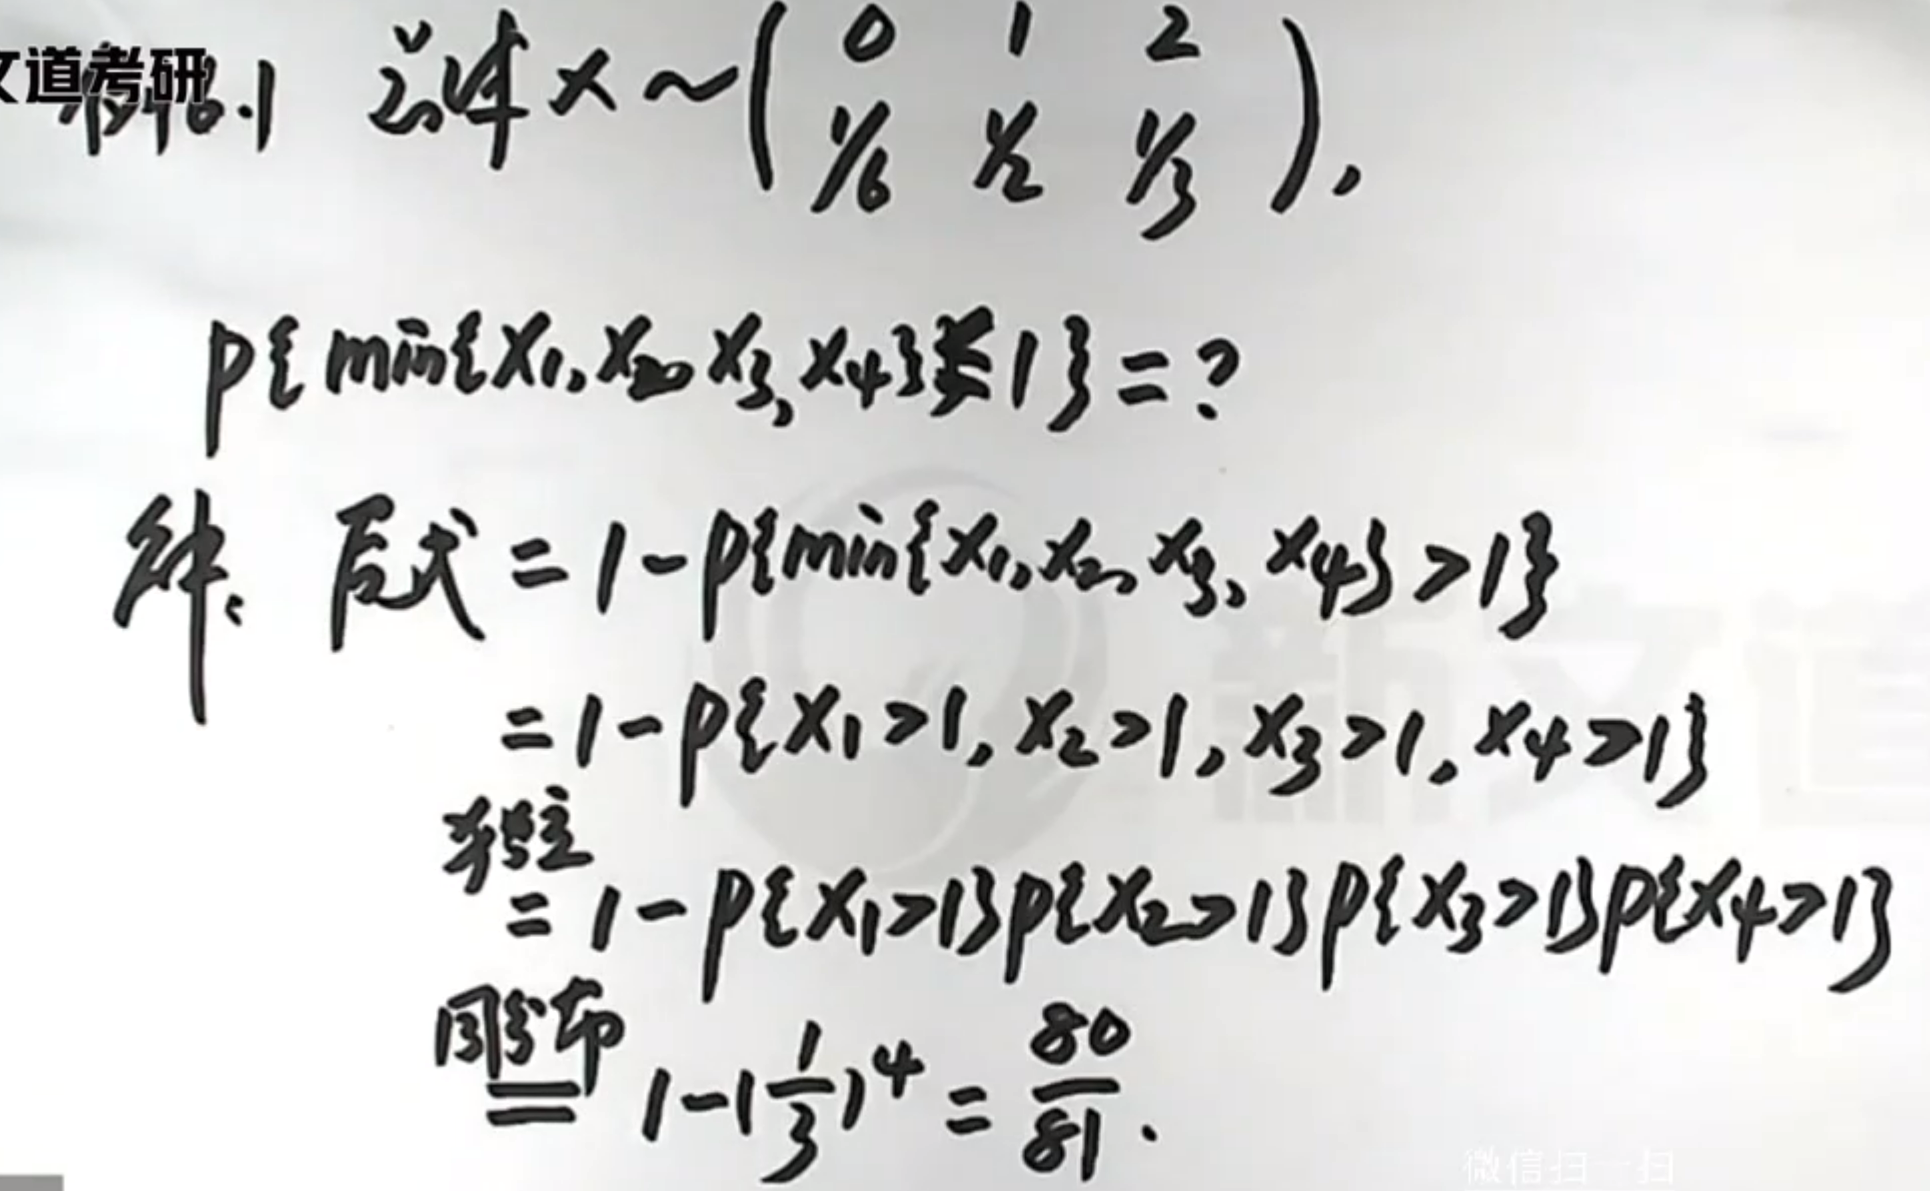 文道考研
例6.1 总体X~( 0 1 2
1/6 1/2 1/3 ),
P{min{X1,X2,X3,X4}≤1}=?
解: 原式=1-P{min{X1,X2,X3,X4}>1}
=1-P{X1>1,X2>1,X3>1,X4>1}
独立
=1-P{X1>1}P{X2>1}P{X3>1}P{X4>1}
同分布
=1-(1/3)^4=80/81.
新文道
微信扫一扫